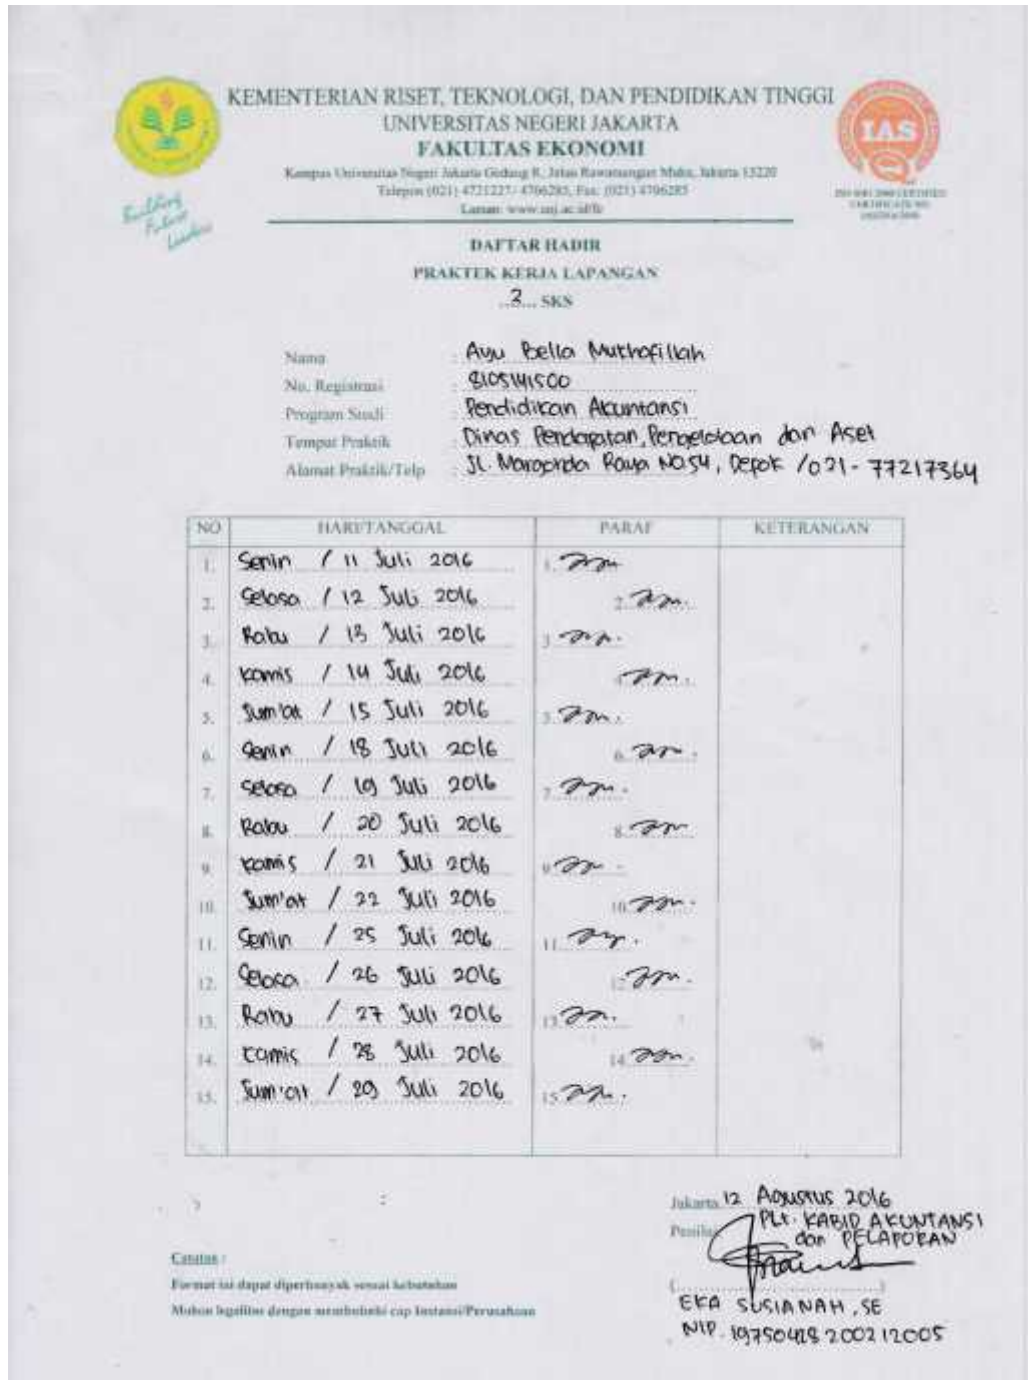 KEMENTERIAN RISET, TEKNOLOGI, DAN PENDIDIKAN TINGGI
UNIVERSITAS NEGERI JAKARTA
FAKULTAS EKONOMI
Kampus Universitas Negeri Jakarta Gedung R, Jalan Rawamangun Muka, Jakarta 13220
Telepon (021) 4721227/ 4706285, Fax: (021) 4706285
Laman: www.unj.ac.id/fe
IAS
Building
Future
Leaders
DAFTAR HADIR
PRAKTEK KERJA LAPANGAN
..3... SKS
Nama : Ayu Bella Mukhofillah
No. Registrasi : 8105141500
Program Studi : Pendidikan Akuntansi
Tempat Praktik : Dinas Pendapatan, Pengelolaan dan Aset
Alamat Praktik/Telp : Jl. Margonda Raya No.54, Depok /021-77217364
NO HARI/TANGGAL PARAF KETERANGAN
1. Senin / 11 Juli 2016 1.
2. Selasa / 12 Juli 2016 2.
3. Rabu / 13 Juli 2016 3.
4. Kamis / 14 Juli 2016 4.
5. Jum'at / 15 Juli 2016 5.
6. Senin / 18 Juli 2016 6.
7. Selasa / 19 Juli 2016 7.
8. Rabu / 20 Juli 2016 8.
9. Kamis / 21 Juli 2016 9.
10. Jum'at / 22 Juli 2016 10.
11. Senin / 25 Juli 2016 11.
12. Selasa / 26 Juli 2016 12.
13. Rabu / 27 Juli 2016 13.
14. Kamis / 28 Juli 2016 14.
15. Jum'at / 29 Juli 2016 15.
Jakarta 12 Agustus 2016
Penilai PLt. KABID AKUNTANSI
dan PELAPORAN
(....................)
EKA SUSIANAH, SE
NIP. 19750418200212005
Catatan :
Format ini dapat diperbanyak sesuai kebutuhan
Mohon legalitas dengan membubuhi cap Instansi/Perusahaan